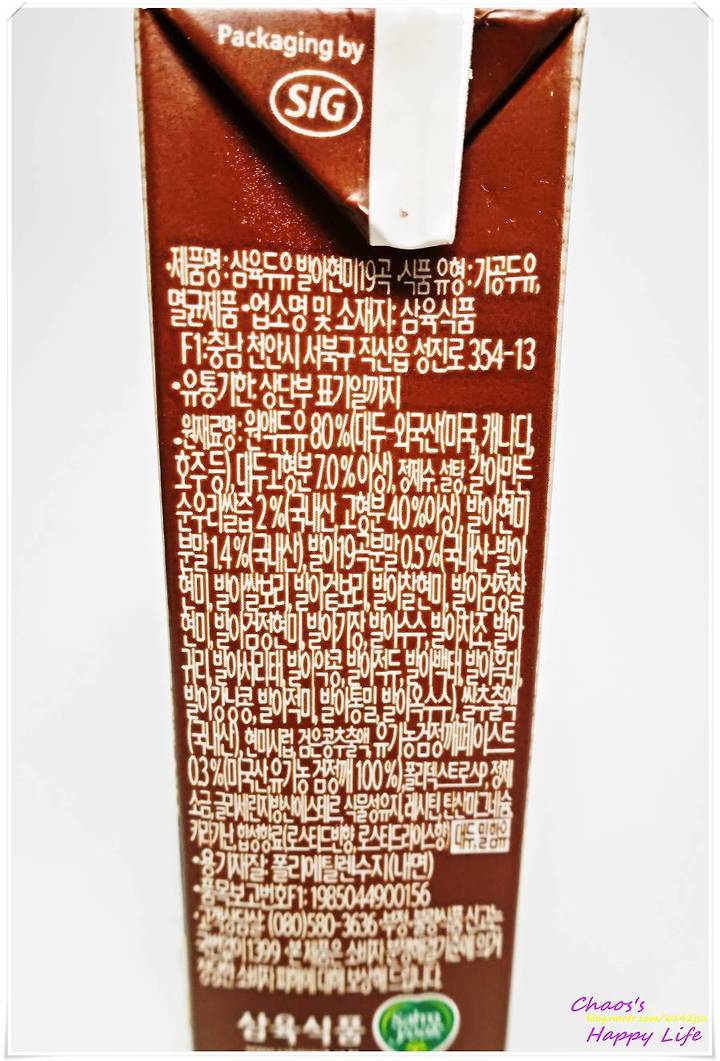 Packaging by
SIG
•제품명:삼육두유 발아현미19곡 •식품 유형:가공두유,
멸균제품 •업소명 및 소재지:삼육식품
F1:충남 천안시 서북구 직산읍 성진로 354-13
•유통기한:상단부 표기일까지
•원재료명:원액두유 80%(대두-외국산(미국, 캐나다,
호주 등), 대두고형분 7.0%이상), 정제수, 설탕, 갈아만든
순우리쌀즙 2%(국내산, 고형분 40%이상), 발아현미
분말 1.4%(국내산), 발아19곡분말 0.5%(국내산-발아
현미, 발아쌀보리, 발아겉보리, 발아찰현미, 발아검정찰
현미, 발아검정현미, 발아기장, 발아수수, 발아차조, 발아
귀리, 발아서리태, 발아약콩, 발아적두, 발아백태, 발아흑태,
발아강낭콩, 발아적미, 발아통밀, 발아옥수수), 쌀추출액
(국내산), 현미시럽, 검은콩추출액, 유기농검정깨페이스트
0.3%(미국산,유기농 검정깨 100%), 폴리덱스트로스P, 정제
소금, 글리세린지방산에스테르, 식물성유지, 레시틴, 탄산마그네슘,
카라기난, 합성향료(로스티드빈향, 로스티드라이스향) 대두, 밀 함유
•용기재질:폴리에틸렌수지(내면)
•품목보고번호F1:1985044900156
•고객상담실:(080)580-3636 •부정·불량식품 신고는
국번없이 1399 •본 제품은 소비자 분쟁해결기준에 의거
정당한 소비자 피해에 대해 보상해 드립니다.
삼육식품
Sahm
yook
Chaos's
Happy Life